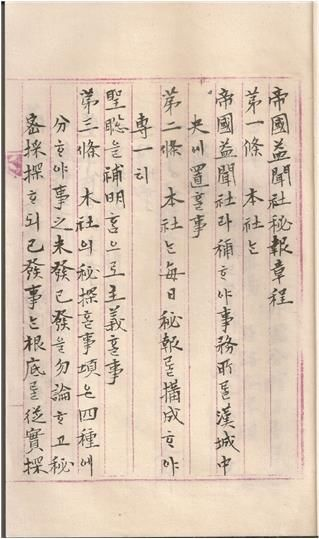 帝國益聞社秘報章程
第一條 本社는
帝國益聞社라 稱ᄒᆞ야 事務所를 漢城中
央에 置ᄒᆞᆯ事
第二條 本社는 每日秘報를 搆成ᄒᆞ야
專一히
聖聰을 補明홈으로 主義ᄒᆞᆯ事
第三條 本社의 秘探ᄒᆞᆯ事項은 四種에
分ᄒᆞ야 事之未發已發을 勿論ᄒᆞ고 秘
密採探ᄒᆞ되 已發事는 根底를 從實探